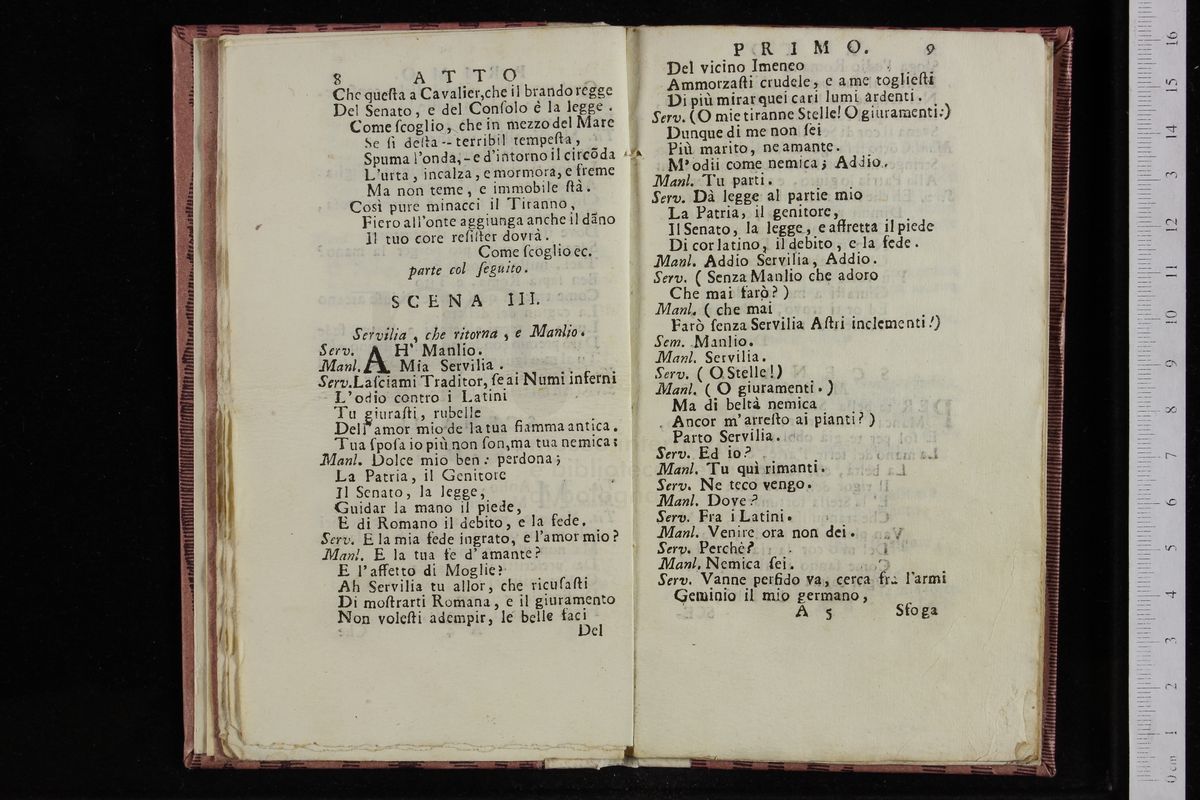 8 ATTO
Che questa a Cavalier,che il brando regge
Del Senato, e del Consolo è la legge.
Come scoglio, che in mezzo del Mare
Se si desta -- terribil tempesta,
Spuma l'onda,-e d'intorno il circõda
L'urta, incalza, e mormora, e freme
Ma non teme, e immobile stà.
Così pure minacci il Tiranno,
Fiero all'onte aggiunga anche il dãno
Il tuo core resister dovrà.
Come scoglio ec.
parte col seguito.
SCENA III.
Servilia, che ritorna, e Manlio.
Serv. AH' Manlio.
Manl. Mia Servilia.
Serv.Lasciami Traditor, se ai Numi inferni
L'odio contro i Latini
Tu giurasti, rubelle
Dell'amor mio de la tua fiamma antica.
Tua sposa io più non son,ma tua nemica:
Manl. Dolce mio ben: perdona;
La Patria, il Genitore
Il Senato, la legge,
Guidar la mano il piede,
E di Romano il debito, e la fede.
Serv. E la mia fede ingrato, e l'amor mio?
Manl. E la tua fe d'amante?
E l'affetto di Moglie?
Ah Servilia tu allor, che ricusasti
Di mostrarti Romana, e il giuramento
Non volesti adempir, le belle faci
Del
PRIMO. 9
Del vicino Imeneo
Ammorzasti crudele, e a me togliesti
Di più mirar quei cari lumi ardenti.
Serv. (O mie tiranne Stelle! O giuramenti:)
Dunque di me non sei
Più marito, ne amante.
M'odii come nemica; Addio.
Manl. Tu parti.
Serv. Dà legge al partie mio
La Patria, il genitore,
Il Senato, la legge, e affretta il piede
Di cor latino, il debito, e la fede.
Manl. Addio Servilia, Addio.
Serv. (Senza Manlio che adoro
Che mai farò?)
Manl. (che mai
Farò senza Servilia Astri inclementi!)
Sem. Manlio.
Manl. Servilia.
Serv. (O Stelle!)
Manl. (O giuramenti.)
Ma di beltà nemica
Ancor m'arresto ai pianti?)
Parto Servilia.
Serv. Ed io?
Manl. Tu quì rimanti.
Serv. Ne teco vengo.
Manl. Dove?
Serv. Fra i Latini.
Manl. Venire ora non dei.
Serv. Perchè?
Manl. Nemica sei.
Serv. Vanne perfido va, cerca fra l'armi
Geminio il mio germano,
A 5 Sfoga